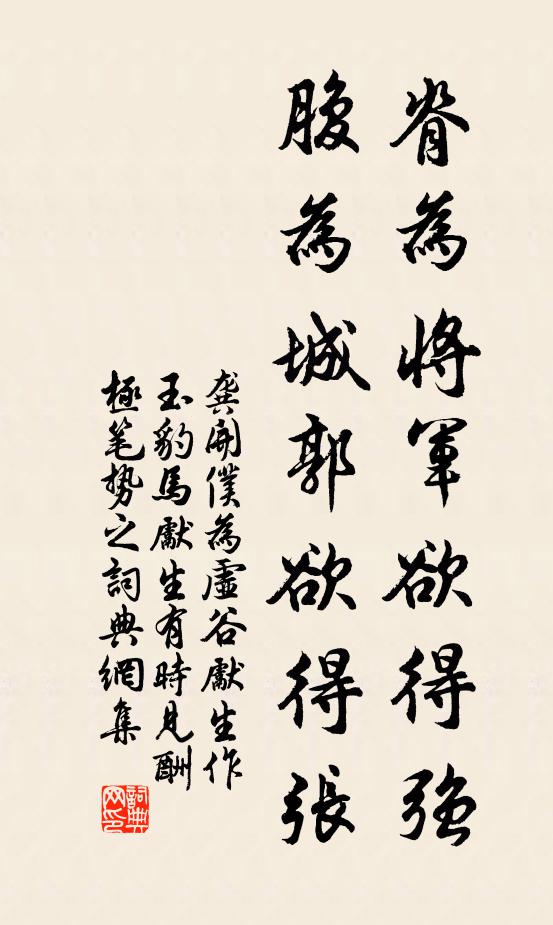 脊為將軍欲得强
腹為城郭欲得張
龔開僕為虛谷獻生作
玉豹馬獻生有時見酬
極笔勢之詞典網集
詞典网印